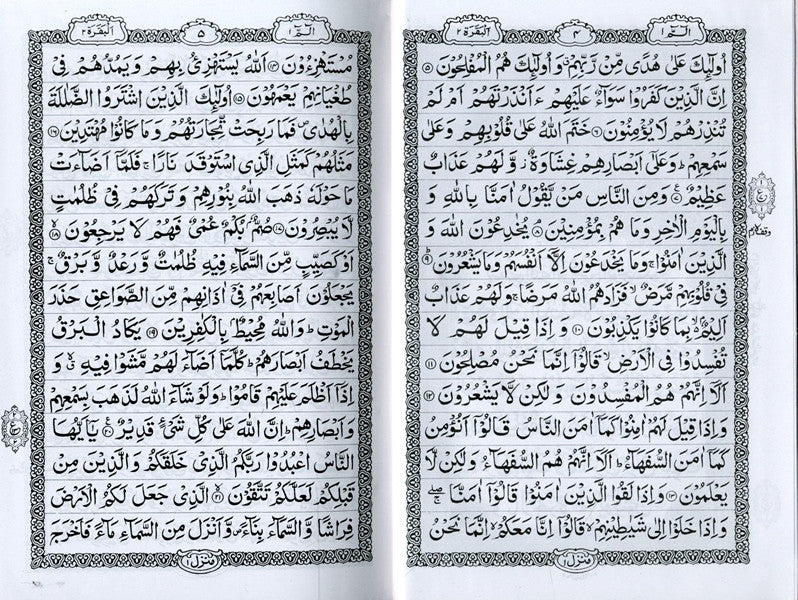 الٓمّٓ ١
٤
البقرة ٢
اُولٰٓئِكَ عَلٰى هُدًى مِّنْ رَّبِّهِمْ ۗ وَاُولٰٓئِكَ هُمُ الْمُفْلِحُوْنَ ۝٥
اِنَّ الَّذِيْنَ كَفَرُوْا سَوَآءٌ عَلَيْهِمْ ءَاَنْذَرْتَهُمْ اَمْ لَمْ
تُنْذِرْهُمْ لَا يُؤْمِنُوْنَ ۝٦ خَتَمَ اللّٰهُ عَلٰى قُلُوْبِهِمْ وَعَلٰى
سَمْعِهِمْ ؕ وَعَلٰٓى اَبْصَارِهِمْ غِشَاوَةٌ ؗ وَّلَهُمْ عَذَابٌ
عَظِيْمٌ ۝٧ وَمِنَ النَّاسِ مَنْ يَّقُوْلُ اٰمَنَّا بِاللّٰهِ وَ
بِالْيَوْمِ الْاٰخِرِ وَمَا هُمْ بِمُؤْمِنِيْنَ ۝٨ يُخٰدِعُوْنَ اللّٰهَ وَ
الَّذِيْنَ اٰمَنُوْا ۚ وَمَا يَخْدَعُوْنَ اِلَّآ اَنْفُسَهُمْ وَمَا يَشْعُرُوْنَ ۝٩
فِيْ قُلُوْبِهِمْ مَّرَضٌ ۙ فَزَادَهُمُ اللّٰهُ مَرَضًا ۚ وَلَهُمْ عَذَابٌ
اَلِيْمٌ ۢ ۙ بِمَا كَانُوْا يَكْذِبُوْنَ ۝١٠ وَ اِذَا قِيْلَ لَهُمْ لَا
تُفْسِدُوْا فِي الْاَرْضِ ۙ قَالُوْٓا اِنَّمَا نَحْنُ مُصْلِحُوْنَ ۝١١
اَلَآ اِنَّهُمْ هُمُ الْمُفْسِدُوْنَ وَ لٰكِنْ لَّا يَشْعُرُوْنَ ۝١٢
وَاِذَا قِيْلَ لَهُمْ اٰمِنُوْا كَمَآ اٰمَنَ النَّاسُ قَالُوْٓا اَنُؤْمِنُ
كَمَآ اٰمَنَ السُّفَهَآءُ ؕ اَلَآ اِنَّهُمْ هُمُ السُّفَهَآءُ وَلٰكِنْ لَّا
يَعْلَمُوْنَ ۝١٣ وَاِذَا لَقُوا الَّذِيْنَ اٰمَنُوْا قَالُوْٓا اٰمَنَّا ۖۚ
وَاِذَا خَلَوْا اِلٰى شَيٰطِيْنِهِمْ ۙ قَالُوْٓا اِنَّا مَعَكُمْ ۙ اِنَّمَا نَحْنُ
منزل ١
الٓمّٓ ١
٥
البقرة ٢
مُسْتَهْزِءُوْنَ ۝١٤ اَللّٰهُ يَسْتَهْزِئُ بِهِمْ وَيَمُدُّهُمْ فِيْ
طُغْيَانِهِمْ يَعْمَهُوْنَ ۝١٥ اُولٰٓئِكَ الَّذِيْنَ اشْتَرَوُا الضَّلٰلَةَ
بِالْهُدٰى ۪ فَمَا رَبِحَتْ تِّجَارَتُهُمْ وَمَا كَانُوْا مُهْتَدِيْنَ ۝١٦
مَثَلُهُمْ كَمَثَلِ الَّذِى اسْتَوْقَدَ نَارًا ۚ فَلَمَّآ اَضَآءَتْ
مَا حَوْلَهٗ ذَهَبَ اللّٰهُ بِنُوْرِهِمْ وَتَرَكَهُمْ فِيْ ظُلُمٰتٍ
لَّا يُبْصِرُوْنَ ۝١٧ صُمٌّۢ بُكْمٌ عُمْيٌ فَهُمْ لَا يَرْجِعُوْنَ ۝١٨
اَوْ كَصَيِّبٍ مِّنَ السَّمَآءِ فِيْهِ ظُلُمٰتٌ وَّ رَعْدٌ وَّ بَرْقٌ ۚ
يَجْعَلُوْنَ اَصَابِعَهُمْ فِيْٓ اٰذَانِهِمْ مِّنَ الصَّوَاعِقِ حَذَرَ
الْمَوْتِ ؕ وَاللّٰهُ مُحِيْطٌۢ بِالْكٰفِرِيْنَ ۝١٩ يَكَادُ الْبَرْقُ
يَخْطَفُ اَبْصَارَهُمْ ؕ كُلَّمَآ اَضَآءَ لَهُمْ مَّشَوْا فِيْهِ ۙۗ وَ
اِذَآ اَظْلَمَ عَلَيْهِمْ قَامُوْا ؕ وَلَوْ شَآءَ اللّٰهُ لَذَهَبَ بِسَمْعِهِمْ
وَ اَبْصَارِهِمْ ؕ اِنَّ اللّٰهَ عَلٰى كُلِّ شَيْءٍ قَدِيْرٌ ۝٢٠ يٰٓاَيُّهَا
النَّاسُ اعْبُدُوْا رَبَّكُمُ الَّذِيْ خَلَقَكُمْ وَالَّذِيْنَ مِنْ
قَبْلِكُمْ لَعَلَّكُمْ تَتَّقُوْنَ ۝٢١ الَّذِيْ جَعَلَ لَكُمُ الْاَرْضَ
فِرَاشًا وَّ السَّمَآءَ بِنَآءً ۪ وَّاَنْزَلَ مِنَ السَّمَآءِ مَآءً فَاَخْرَجَ
منزل ١